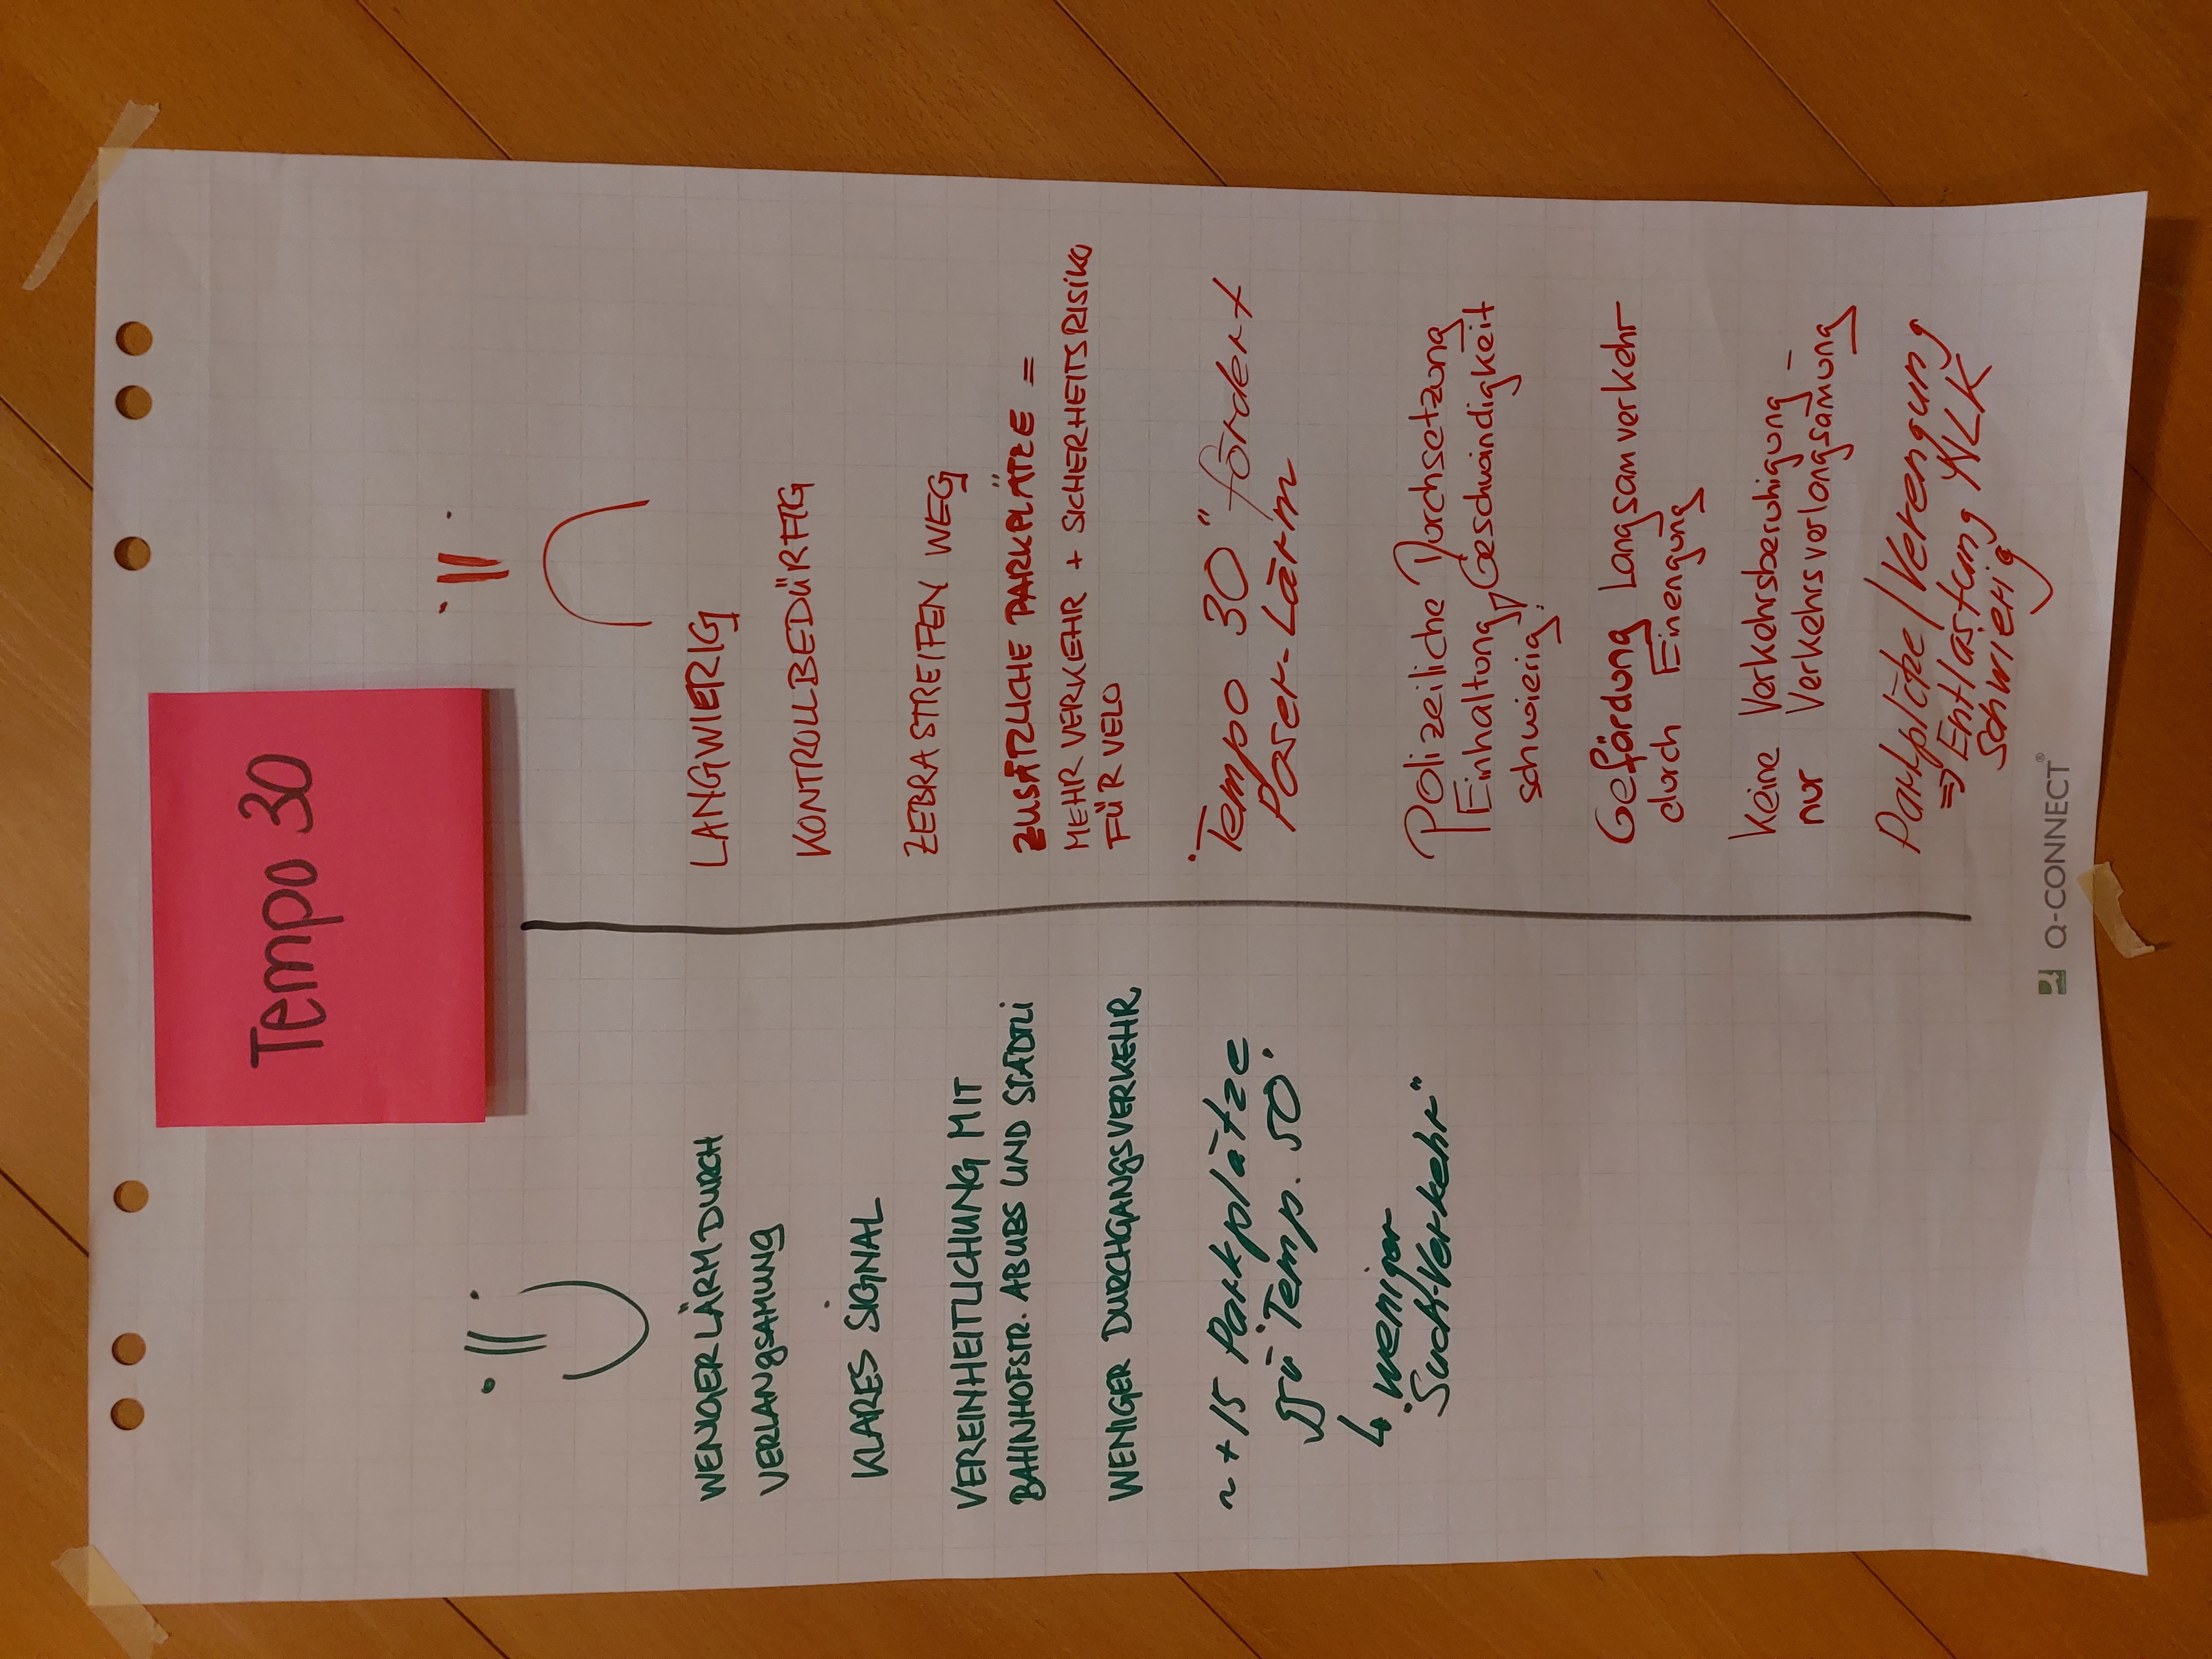 Tempo 30
WENIGER LÄRM DURCH
VERLANGSAMUNG
KLARES SIGNAL
VEREINHEITLICHUNG MIT
BAHNHOFSTR. ABUBS UND STÄDTLI
WENIGER DURCHGANGSVERKEHR
~ +15 Parkplätze
zu "Temp. 50".
↳ weniger
"Such-Verkehr"
LANGWIERIG
KONTROLLBEDÜRFTIG
ZEBRASTREIFEN WEG
ZUSÄTZLICHE PARKPLÄTZE =
MEHR VERKEHR + SICHERHEITSRISIKO
FÜR VELO
"Tempo 30" fördert
Poser-Lärm
Polizeiliche Durchsetzung
Einhaltung Geschwindigkeit
schwierig.
Gefördung Langsamverkehr
durch Einengung
Keine Verkehrsberuhigung –
nur Verkehrsverlongsamung
Parkplätze/Verengung
=> Entlastung NLK
Schwierig
Q-CONNECT®